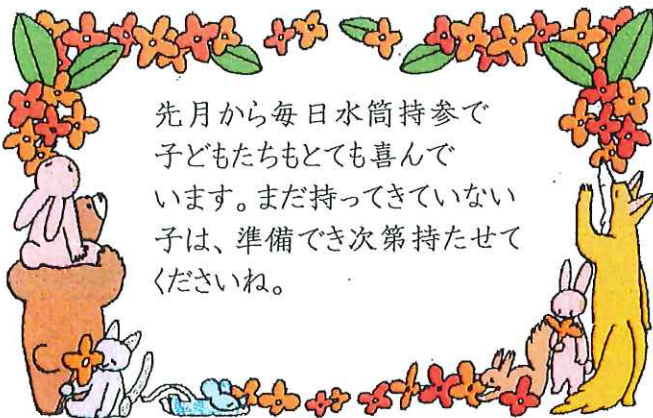 先月から毎日水筒持参で
子どもたちもとても喜んで
います。まだ持ってきていない
子は、準備でき次第持たせて
くださいね。